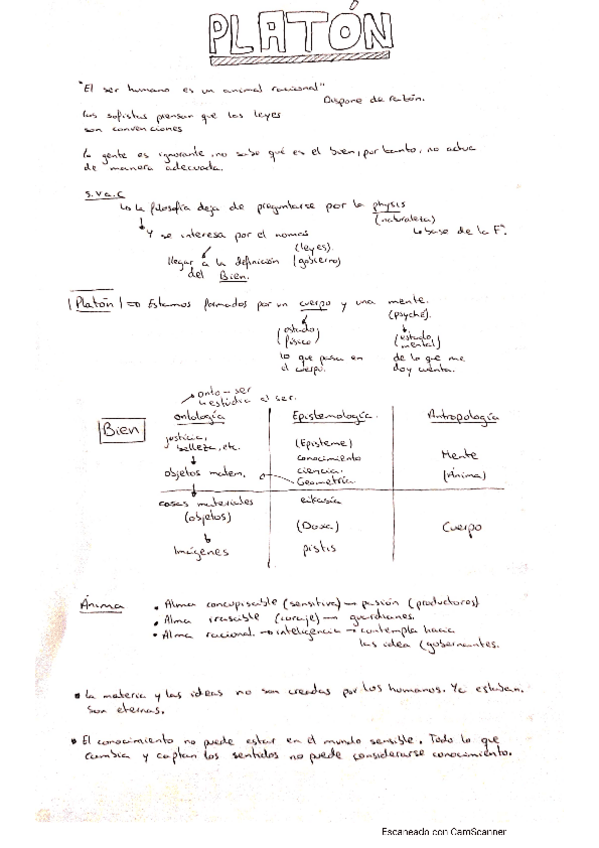 PLATÓN
"El ser humano es un animal racional"
Dispone de razón.
Los sofistas piensan que las leyes
son convenciones
la gente es ignorante, no sabe qué es el bien, por tanto, no actúa
de manera adecuada.
S.V a.C
la filosofía deja de preguntarse por la physis
(naturaleza)
Y se interesa por el nomos
base de la Fª.
(leyes)
llegar a la definición (gobierno)
del Bien.
Platón => Estamos formados por un cuerpo y una mente.
(psyché).
(estado físico)
(estado mental)
lo que pasa en
el cuerpo.
de lo que me
doy cuenta.
onto - ser
estudia el ser.
Bien
ontología
Epistemología.
Antropología
justicia,
belleza, etc.
(Episteme)
conocimiento
Mente
objetos matem.
ciencia.
Geometría
(Ánima)
cosas materiales
(objetos)
eikasía
(Doxa)
Cuerpo
Imágenes
pistis
Ánima
• Alma concupiscible (sensitiva) → pasión (productores)
• Alma irascible (coraje) → guardianes.
• Alma racional. → inteligencia → contempla hacia
las idea (gobernantes.
• La materia y las ideas no son creadas por los humanos. Ya estaban.
Son eternas.
• El conocimiento no puede estar en el mundo sensible. Todo lo que
cambia y captan los sentidos no puede considerarse conocimiento.
Escaneado con CamScanner